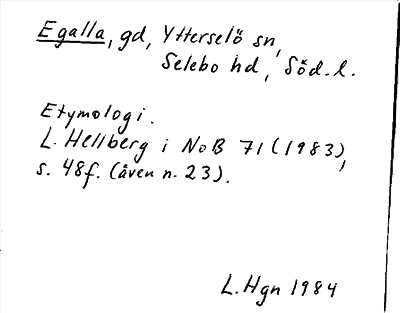 Egalla, gd, Ytterselö sn,
Selebo hd, Söd. l.
Etymologi.
L. Hellberg i NoB 71 (1983),
s. 48f. (även n. 23).
L. Hgn 1984